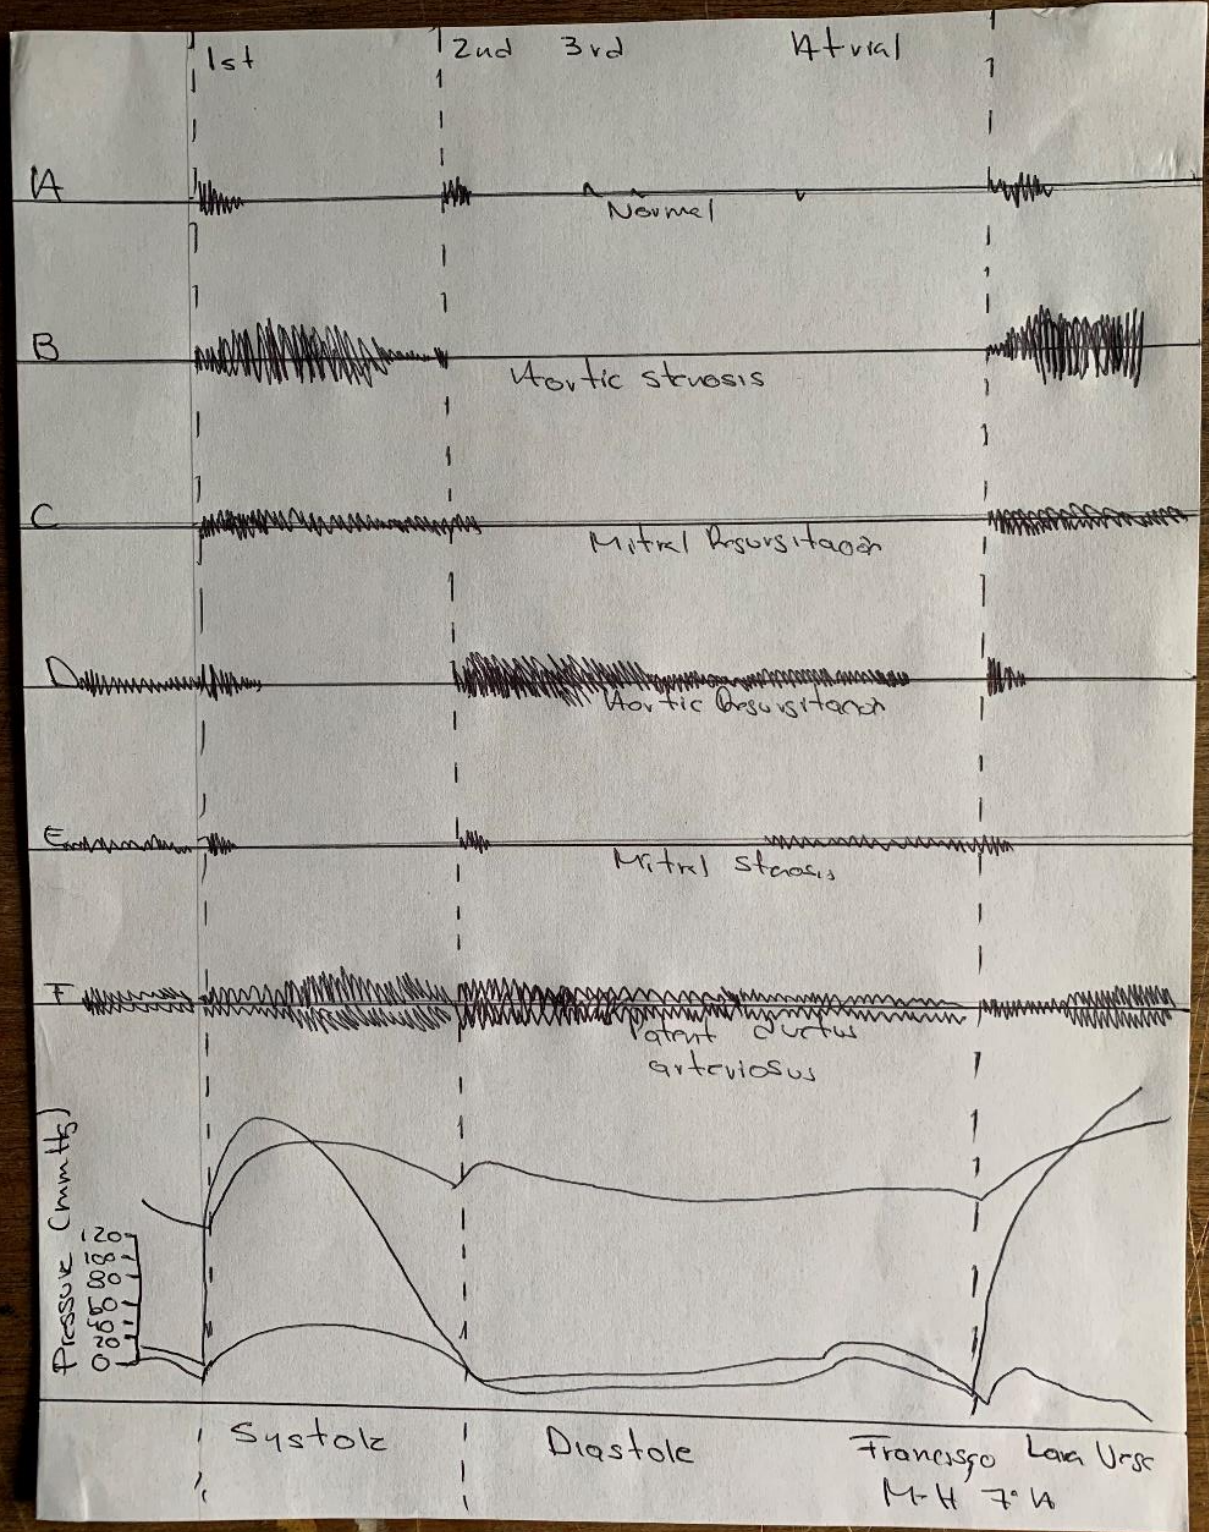 1st 2nd 3rd Atrial
A
Normal
B
Aortic stenosis
C
Mitral Regurgitacion
D
Aortic Regurgitacion
E
Mitral Stenosis
F
Patent ductus
arteriosus
Pressure (mmHg)
120
100
80
60
20
0
Systole
Diastole
Francisco Lara
M-H 7° A